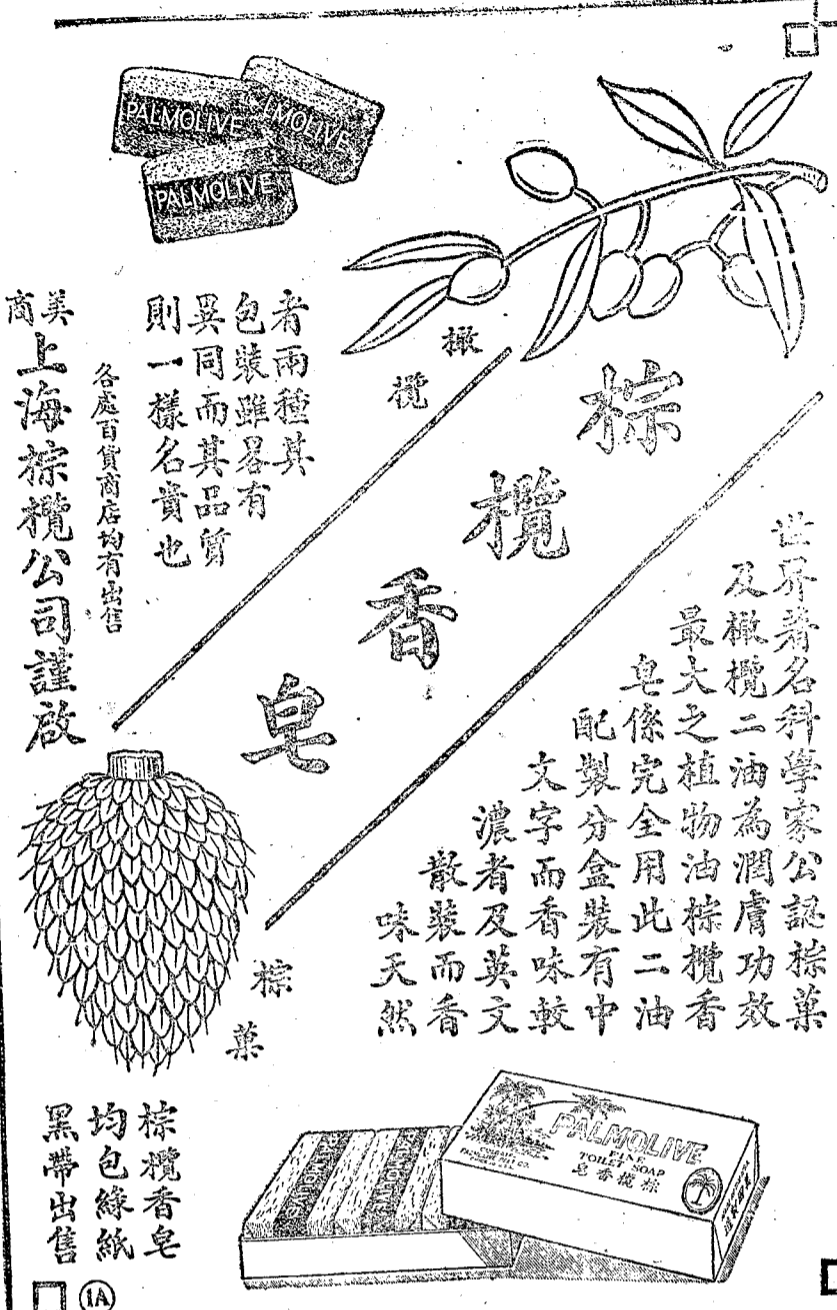 PALMOLIVE
LMOLIVE
PALMOLIVE
橄
欖
棕
欖
香
皂
世界著名科學家公認棕菓
及橄欖二油為潤膚功效
最大之植物油棕欖香
皂係完全用此二油
配製分盒裝有中
文字而香味較
濃者及英文
散裝而香
味天然
者兩種其
包裝雖畧有
異同而其品質
則一樣名貴也
各處百貨商店均有出售
美商
上海棕欖公司謹啟
棕
菓
棕欖香皂
均包綠紙
黑帶出售
PALMOLIVE
FINE
TOILET SOAP
皂香欖棕
PALMOLIVE
1A